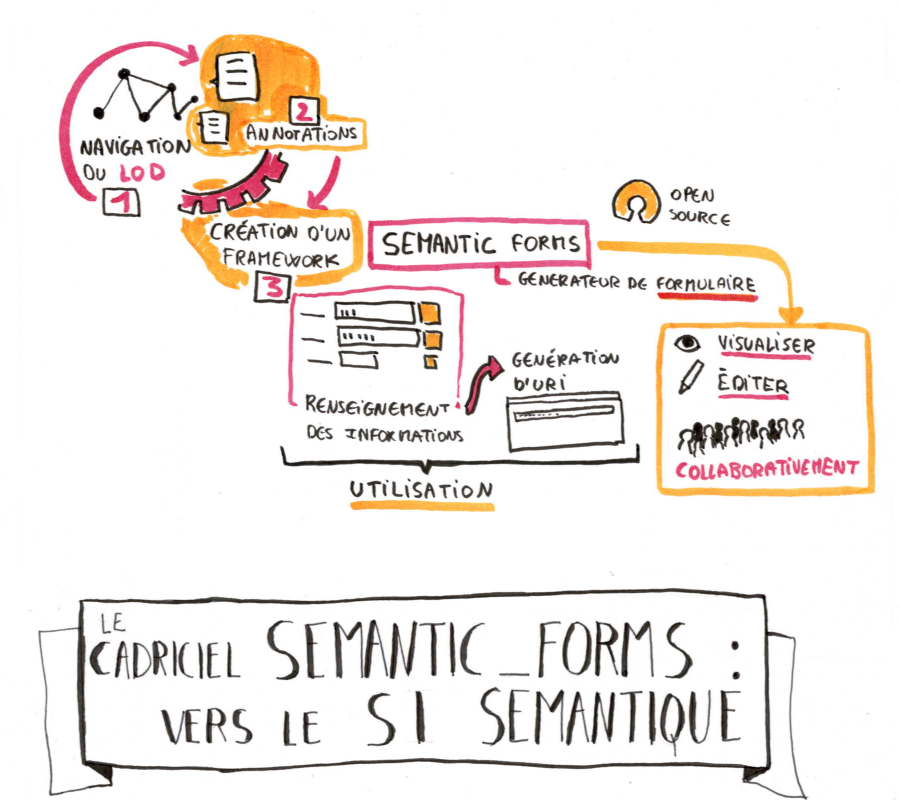 2
ANNOTATIONS
NAVIGATION
DU LOD
1
CRÉATION D'UN
FRAMEWORK
3
SEMANTIC FORMS
GENERATEUR DE FORMULAIRE
OPEN
SOURCE
RENSEIGNEMENT
DES INFORMATIONS
GENÉRATION
D'URI
UTILISATION
VISUALISER
ÉDITER
COLLABORATIVEMENT
LE
CADRICIEL SEMANTIC_FORMS :
VERS LE SI SEMANTIQUE